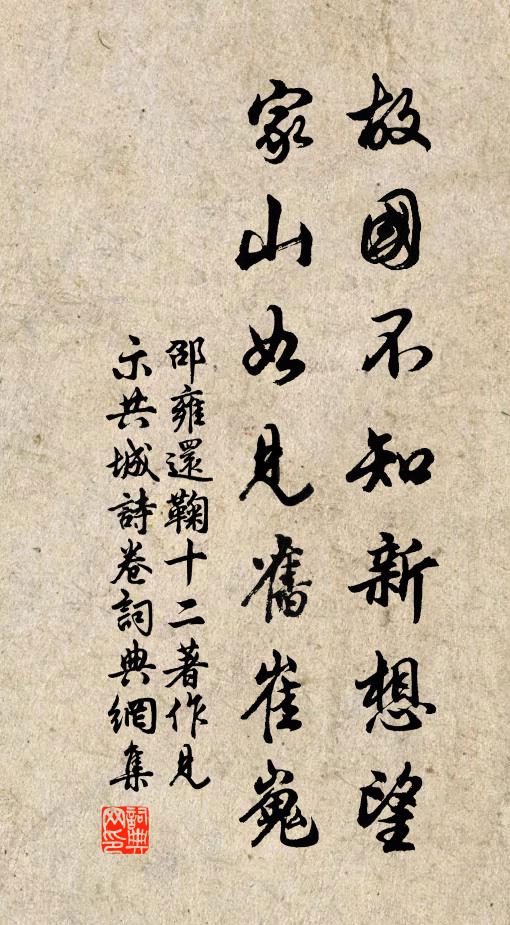 故國不知新想望
家山如見舊崔嵬
邵雍還鞠十二著作見
示共城詩卷詞典網集
詞典網印